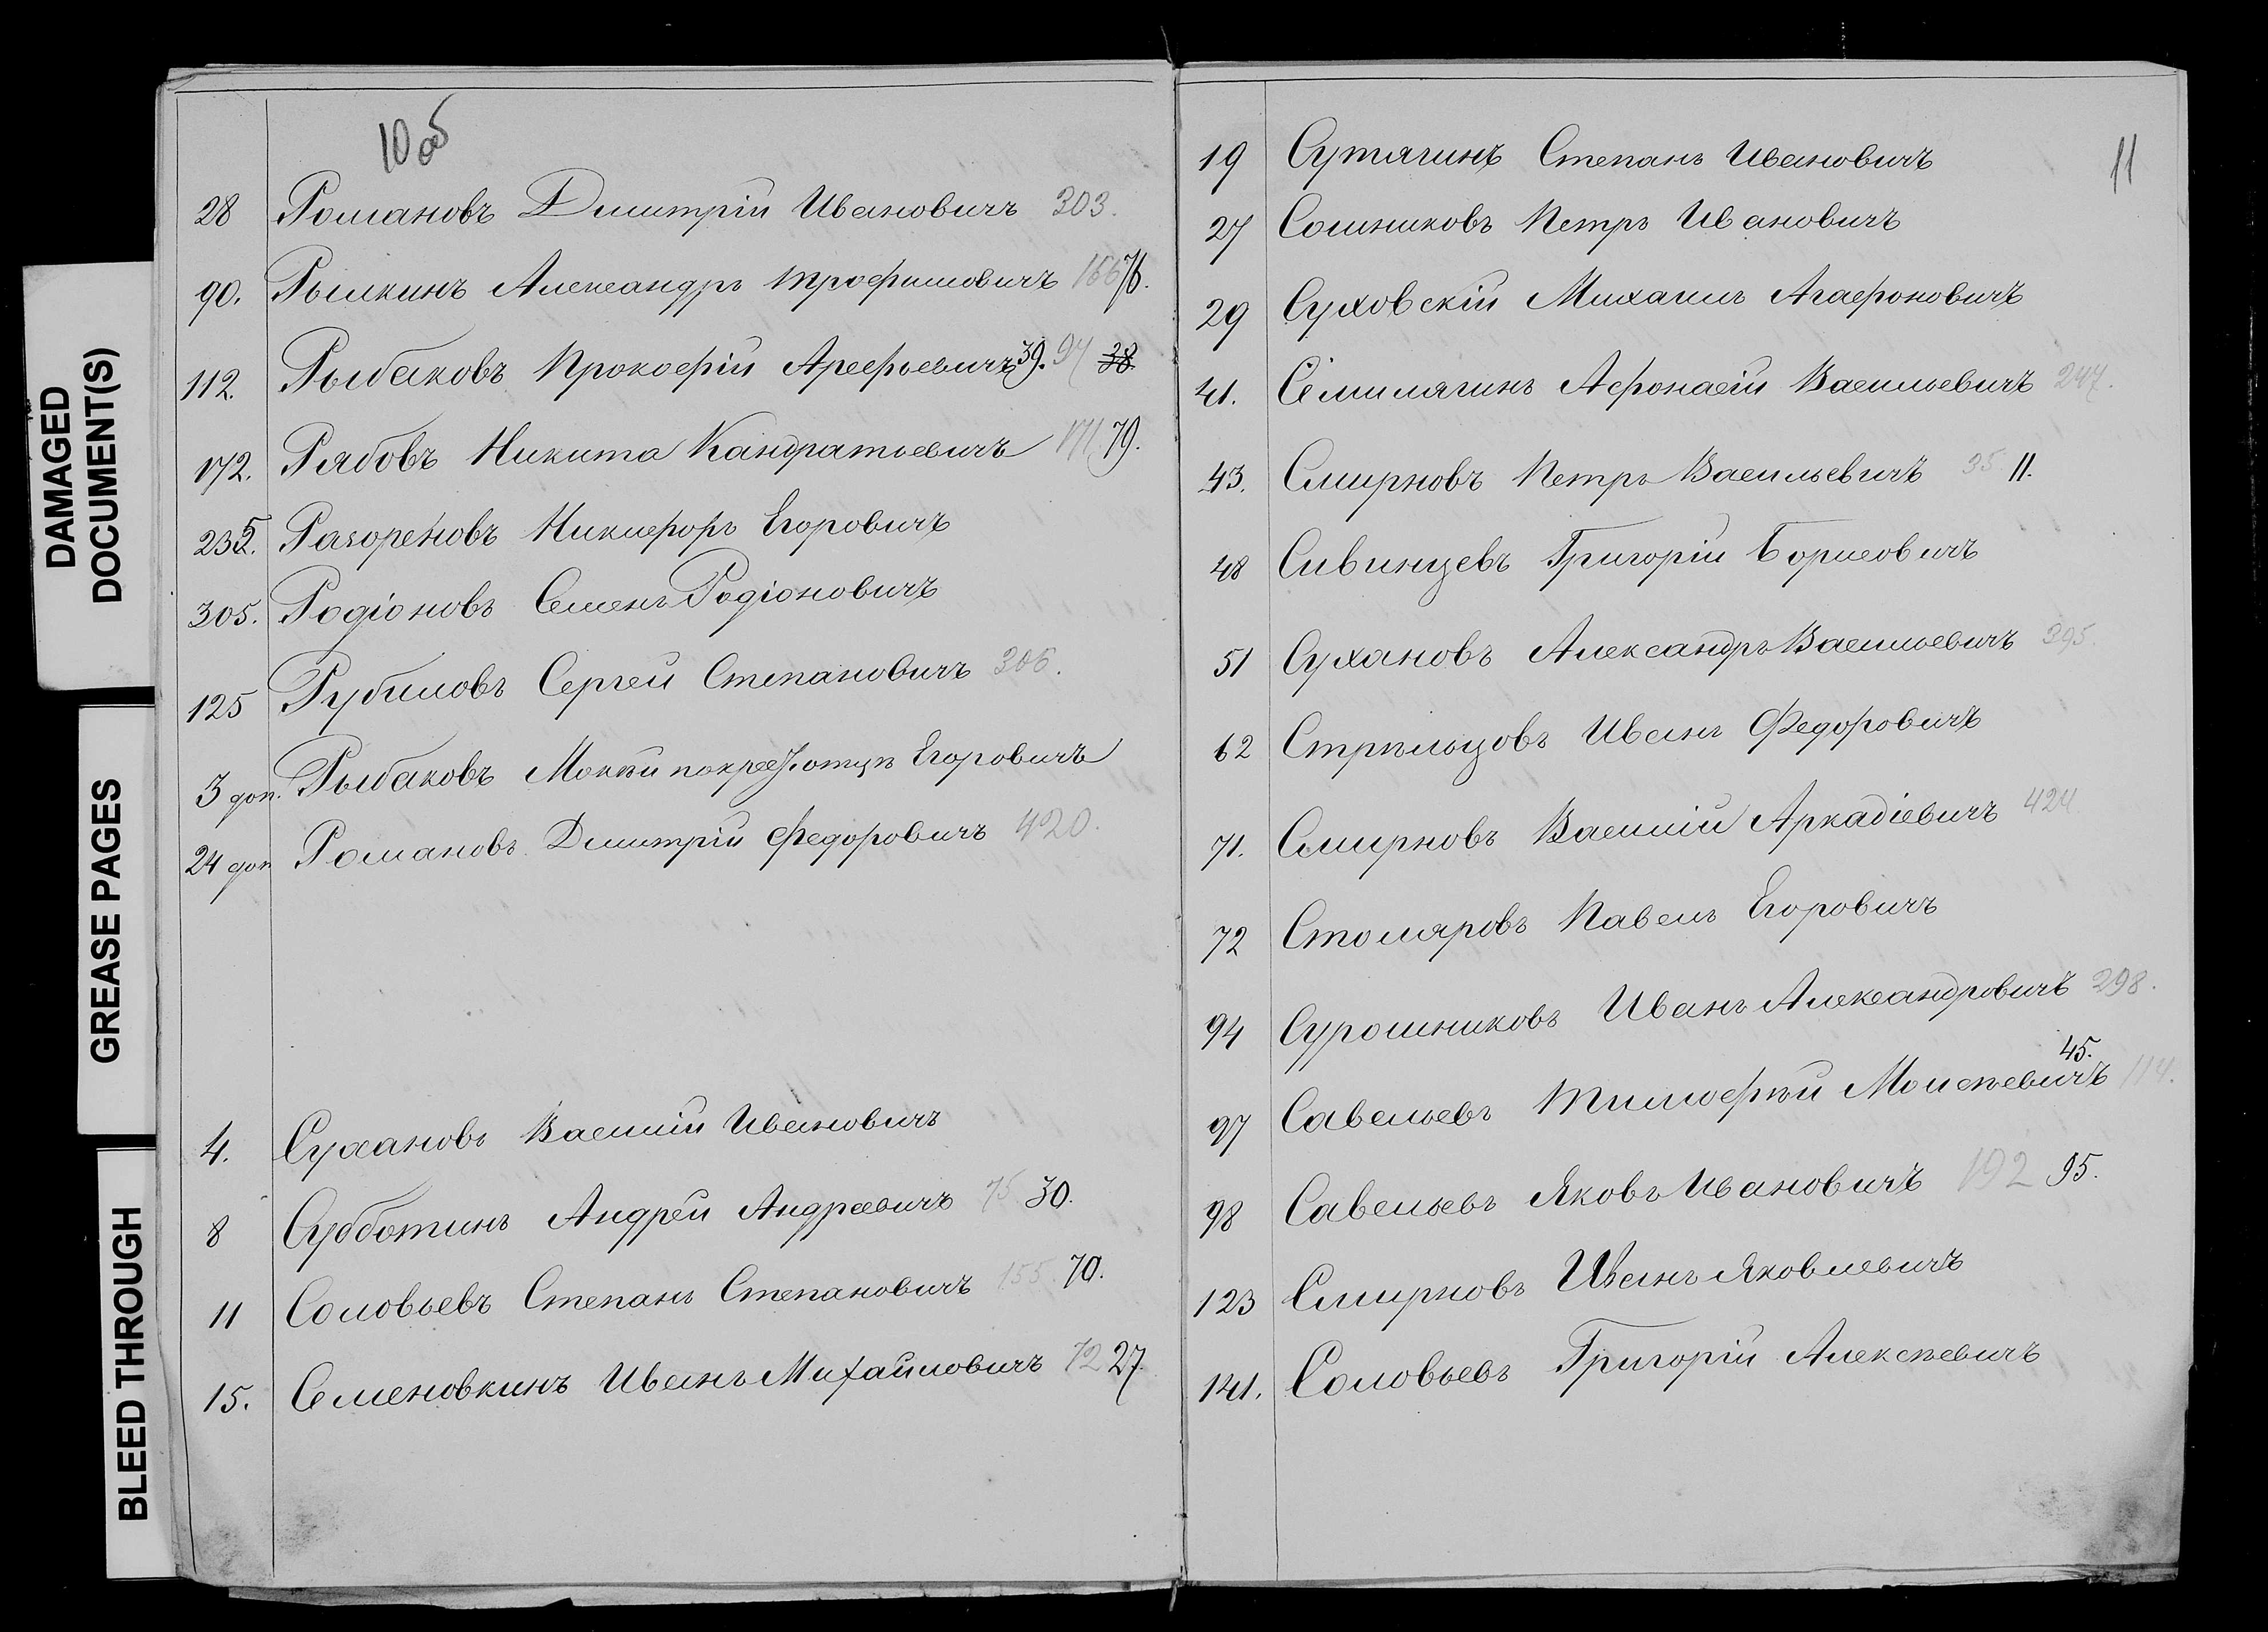 DAMAGED
DOCUMENT(S)
GREASE PAGES
BLEED THROUGH
10 об
28 Романовъ Дмитрій Ивановичъ 303.
90. Рылкинъ Александръ Трофимовичъ 166 76.
112. Рыбаковъ Прокофій Арефьевичъ 39. 94 38
172. Рябовъ Никита Кандратьевичъ 171 79.
235. Разореновъ Никифоръ Егоровичъ
305. Родіоновъ Семенъ Родіоновичъ
125 Рубиловъ Сергей Степановичъ 306.
3 доп. Рыбаковъ Мокѣй по крес. отцѣ Егоровичъ
24 доп Романовъ Дмитрій Федоровичъ 420.
4. Сухановъ Василій Ивановичъ
8 Субботинъ Андрей Андреевичъ 75 30.
11 Соловьевъ Степанъ Степановичъ 155. 70.
15. Семеновкинъ Иванъ Михайловичъ 72 27.
11
19 Сутягинъ Степанъ Ивановичъ
27 Сошниковъ Петръ Ивановичъ
29 Суховскій Михаилъ Агафоновичъ
41. Семилягинъ Афонасій Васильевичъ 247.
43. Смирновъ Петръ Васильевичъ 35 11.
48 Сивинцевъ Григорій Борисовичъ
51 Сухановъ Александръ Васильевичъ 395.
62 Стрѣльцовъ Иванъ Федоровичъ
71. Смирновъ Василій Аркадіевичъ 424
72 Столяровъ Павелъ Егоровичъ
94 Сурошниковъ Иванъ Александровичъ 298.
97 Савельевъ Тимофѣй Моисѣевичъ 45. 114.
98 Савельевъ Яковъ Ивановичъ 192 95.
123 Смирновъ Иванъ Яковлевичъ
141. Соловьевъ Григорій Алексѣевичъ